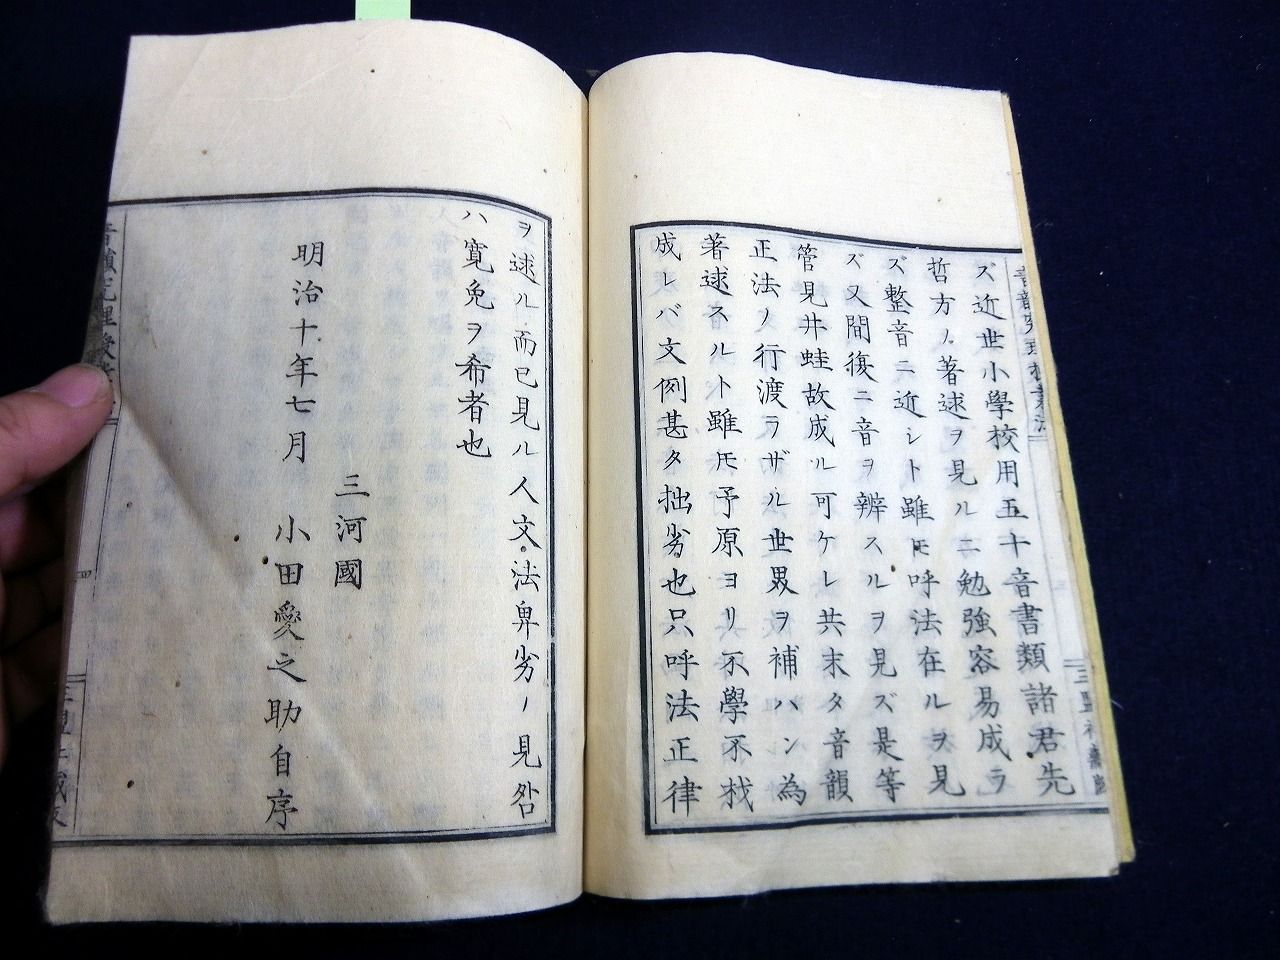 ズ近世小學校用五十音書類諸君先
哲方ノ著述ヲ見ルニ勉強容易成ラ
ズ整音ニ近シト雖モ呼法在ルヲ見
ズ又間復ニ音ヲ辨スルヲ見ズ是等
管見井蛙故成ル可ケレ共末タ音韻
正法ノ行渡ラザル世界ヲ補ハン為
著述スルト雖モ予原ヨリ不學不材
成レバ文例甚タ拙劣也只呼法正律
ヲ述ル而已見ル人文法卑劣ノ見咎
ハ寛免ヲ希者也
三河國
明治十年七月 小田愛之助自序